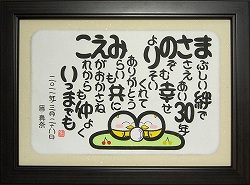 まぶしい絆で
ささえあい30年
のぞむ幸せ
よりそい
くれて
ありがとう
みらいも共に
えがおかさね
これからも仲よく
いつまでも
二〇二一年三月二十八日